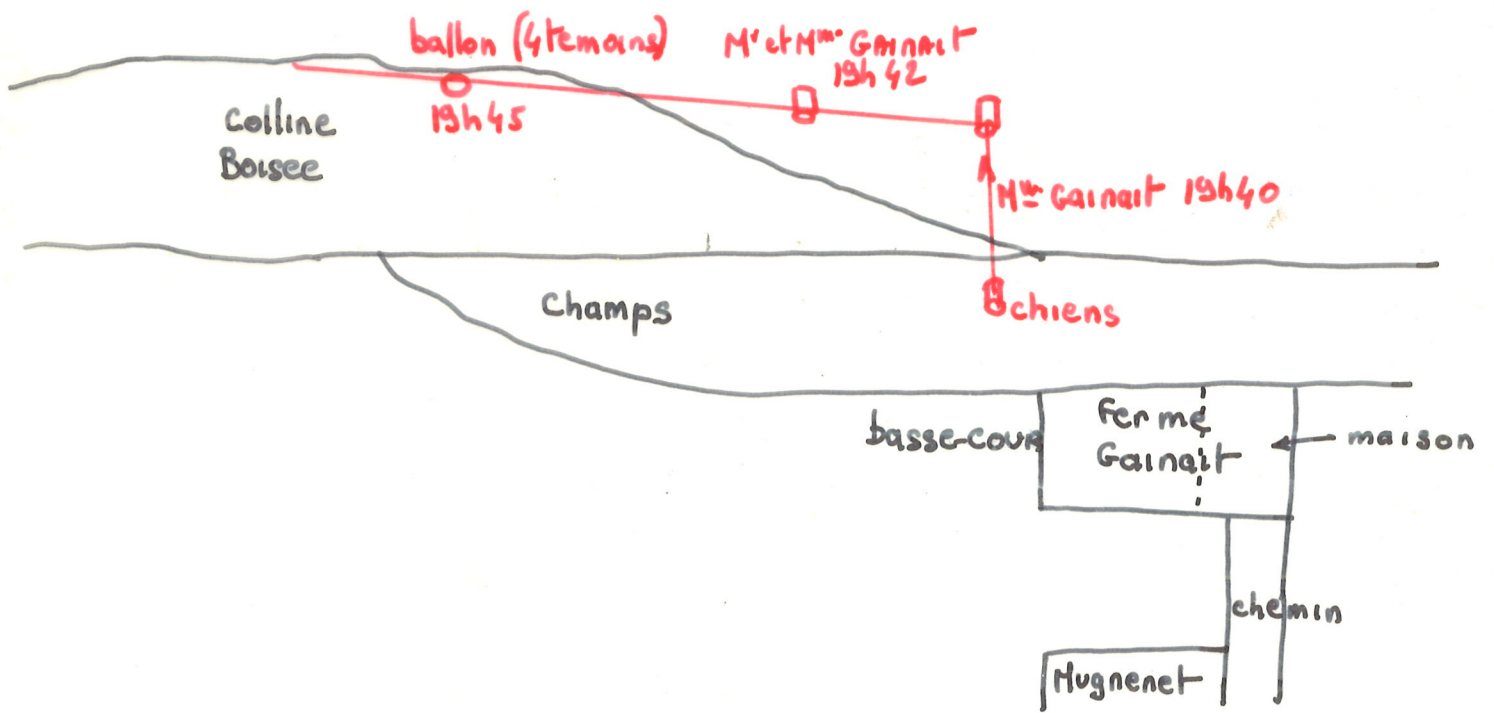 ballon (4 temoins)
Mr et Mme GAINAIT
19h42
19h45
Colline
Boisee
Mme Gainait 19h40
chiens
Champs
basse-cour
Ferme
Gainait
maison
chemin
Mugnenet